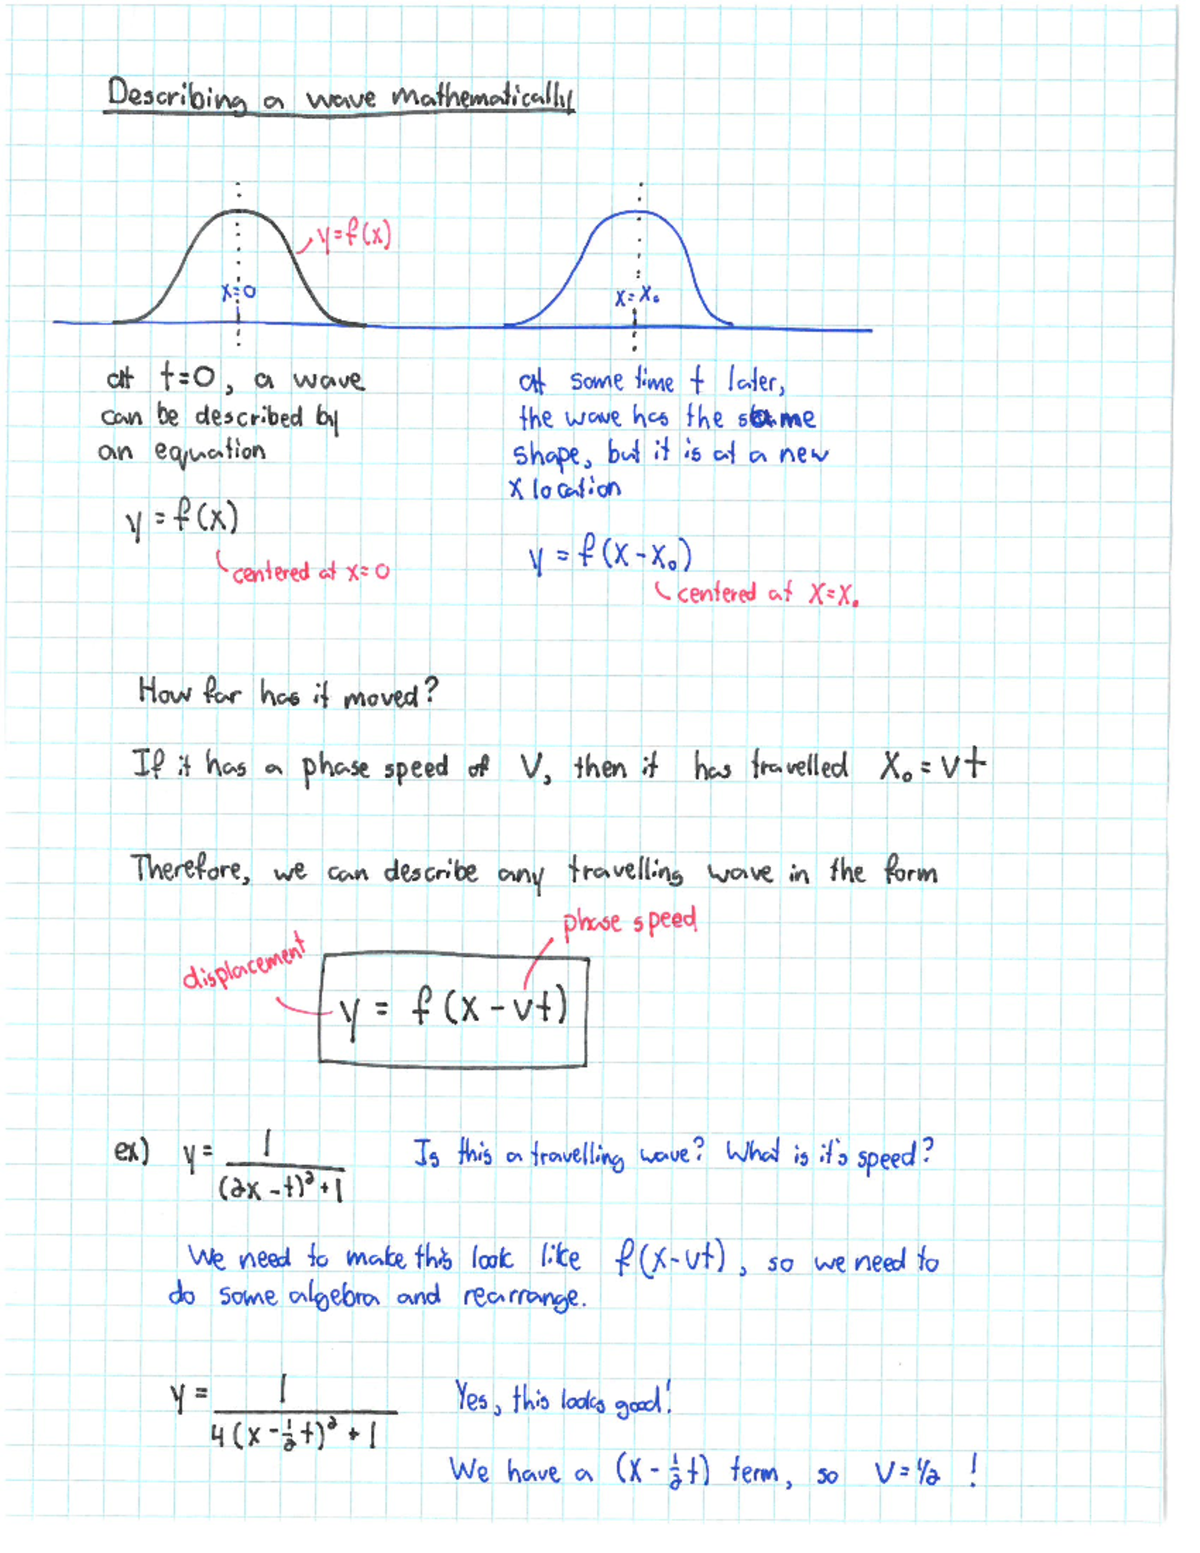 Describing a wave mathematically
y=f(x)
x=0
x=x₀
at t=0, a wave
can be described by
an equation
y=f(x)
centered at x=0
at some time t later,
the wave has the same
shape, but it is at a new
x location
y=f(x-x₀)
centered at x=x₀
How far has it moved?
If it has a phase speed of v, then it has travelled x₀=vt
Therefore, we can describe any travelling wave in the form
phase speed
displacement
y = f(x-vt)
ex) y = 1/((2x-t)²+1) Is this a travelling wave? What is it's speed?
We need to make this look like f(x-vt), so we need to
do some algebra and rearrange.
y = 1/(4(x-½t)²+1) Yes, this looks good!
We have a (x-½t) term, so v=1/2 !